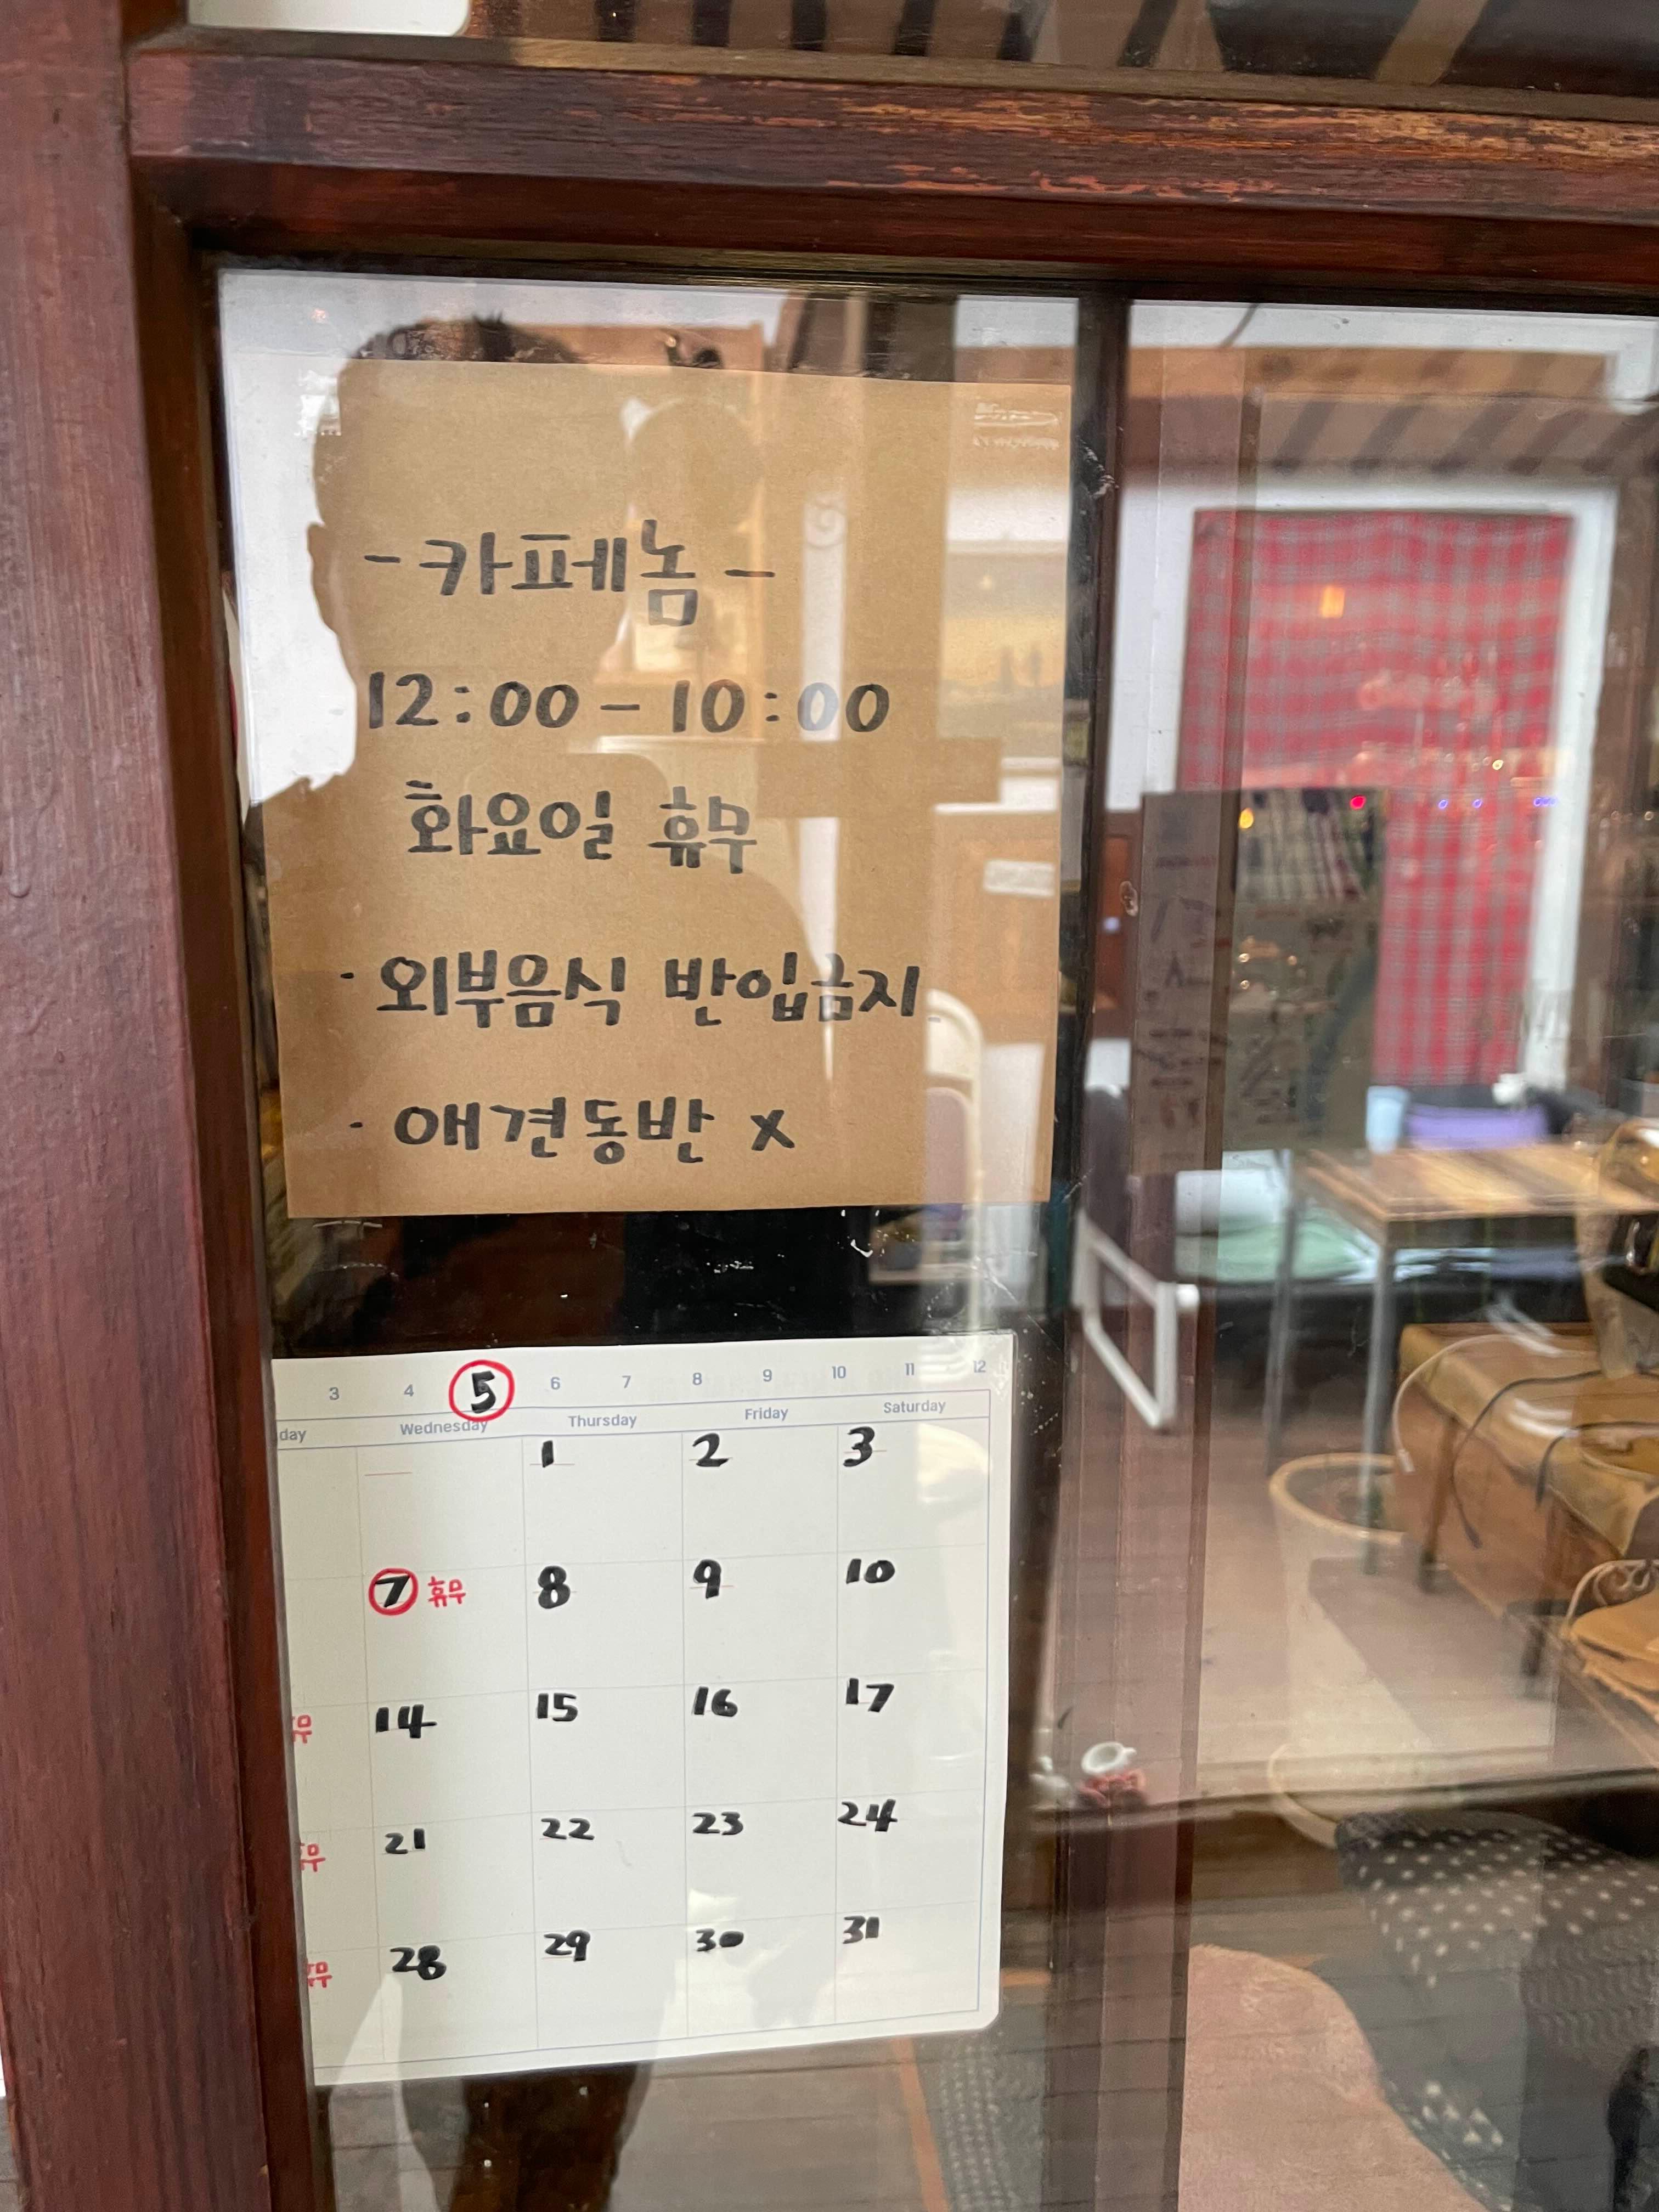 -카페놈-
12:00-10:00
화요일 휴무
· 외부음식 반입금지
· 애견동반 x
3 4 5 6 7 8 9 10 11 12
day Wednesday Thursday Friday Saturday
1 2 3
7 휴무 8 9 10
무 14 15 16 17
무 21 22 23 24
무 28 29 30 31